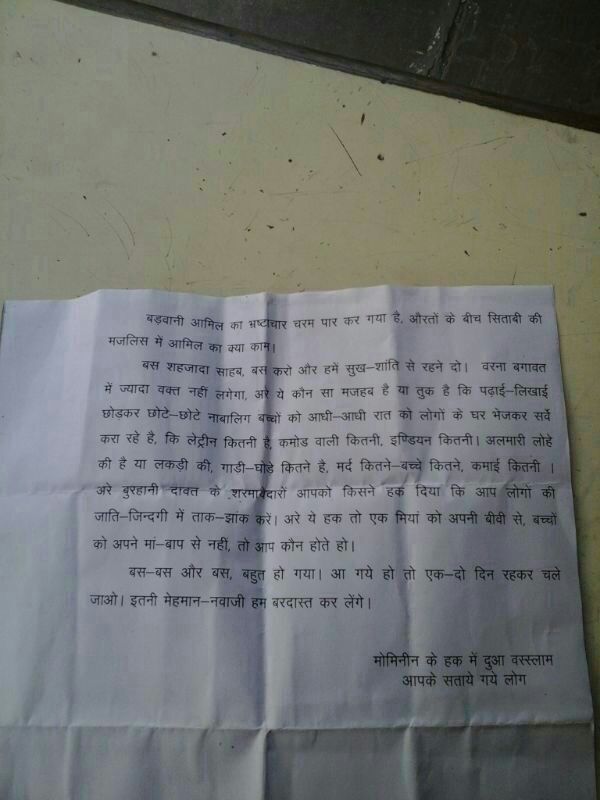 बड़वानी आमिल का भ्रष्टाचार चरम पार कर गया है, औरतों के बीच सिताबी की
मजलिस में आमिल का क्या काम।
बस शहजादा साहब, बस करो और हमें सुख–शांति से रहने दो। वरना बगावत
में ज्यादा वक्त नहीं लगेगा, अरे ये कौन सा मजहब है या तुक है कि पढ़ाई–लिखाई
छोड़कर छोटे–छोटे नाबालिग बच्चों को आधी–आधी रात को लोगों के घर भेजकर सर्वे
करा रहे है, कि लेट्रीन कितनी है, कमोड वाली कितनी, इण्डियन कितनी। अलमारी लोहे
की है या लकड़ी की, गाडी–घोडे कितने है, मर्द कितने–बच्चे कितने, कमाई कितनी ।
अरे बुरहानी दावत के शरमायेदारों आपको किसने हक दिया कि आप लोगों की
जाति–जिन्दगी में ताक–झांक करें। अरे ये हक तो एक मियां को अपनी बीवी से, बच्चों
को अपने मां–बाप से नहीं, तो आप कौन होते हो।
बस–बस और बस, बहुत हो गया। आ गये हो तो एक–दो दिन रहकर चले
जाओ। इतनी मेहमान–नवाजी हम बरदास्त कर लेंगे।
मोमिनीन के हक में दुआ वस्स्लाम
आपके सताये गये लोग